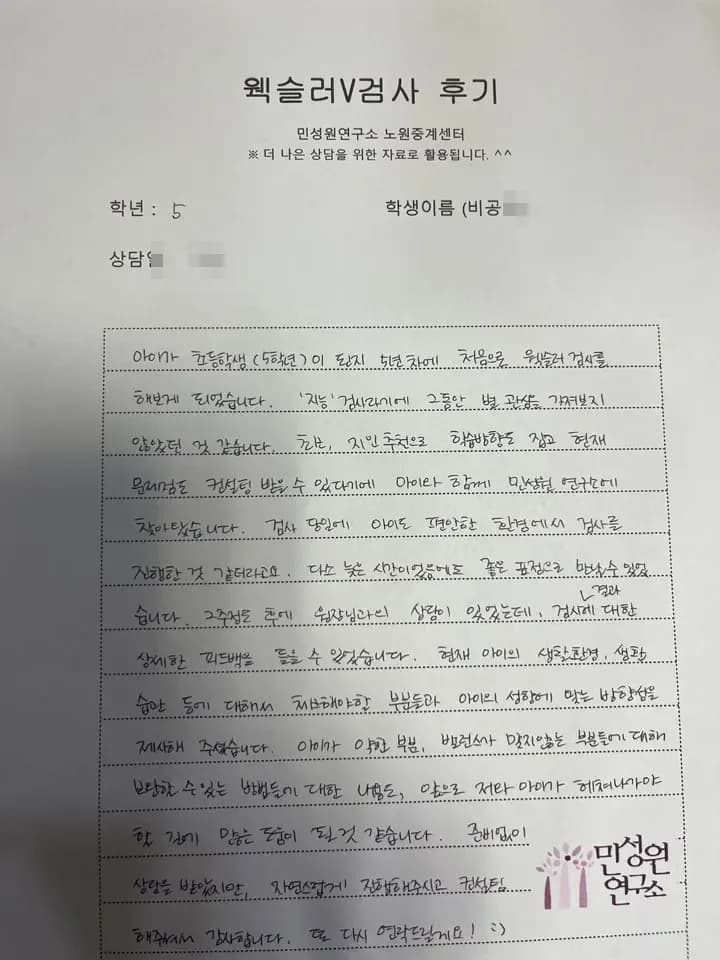 웩슬러V검사 후기
민성원연구소 노원중계센터
※ 더 나은 상담을 위한 자료로 활용됩니다. ^^
학년 : 5 학생이름 (비공
상담
아이가 초등학생(5학년)이 된지 5년차에 처음으로 웩슬러 검사를
해보게 되었습니다. '지능' 검사라기에 그동안 별 관심을 가져보지
않았던 것 같습니다. 최근, 지인 추천으로 학습방향도 잡고 현재
문제점도 컨설팅 받을 수 있다기에 아이와 함께 민성원 연구소에
찾아왔습니다. 검사 당일에 아이도 편안한 환경에서 검사를
진행한 것 같더라고요. 다소 늦은 시간이었음에도 좋은 표정으로 만날 수 있었
습니다. 2주정도 후에 원장님과의 상담이 있었는데, 검사결과에 대한
상세한 피드백을 들을 수 있었습니다. 현재 아이의 생활환경, 생활
습관 등에 대해서 해야할 부분들과 아이의 성향에 맞는 방향성을
제시해 주셨습니다. 아이가 약한 부분, 밸런스가 맞지않는 부분들에 대해
보완할 수 있는 방법들에 대한 내용도, 앞으로 저와 아이가 헤쳐나가야
할 것에 많은 도움이 될 것 같습니다. 준비없이
상담을 받았지만, 자연스럽게 진행해주시고 컨설팅
해주셔서 감사합니다. 또 다시 연락드릴게요! :)
민성원
연구소